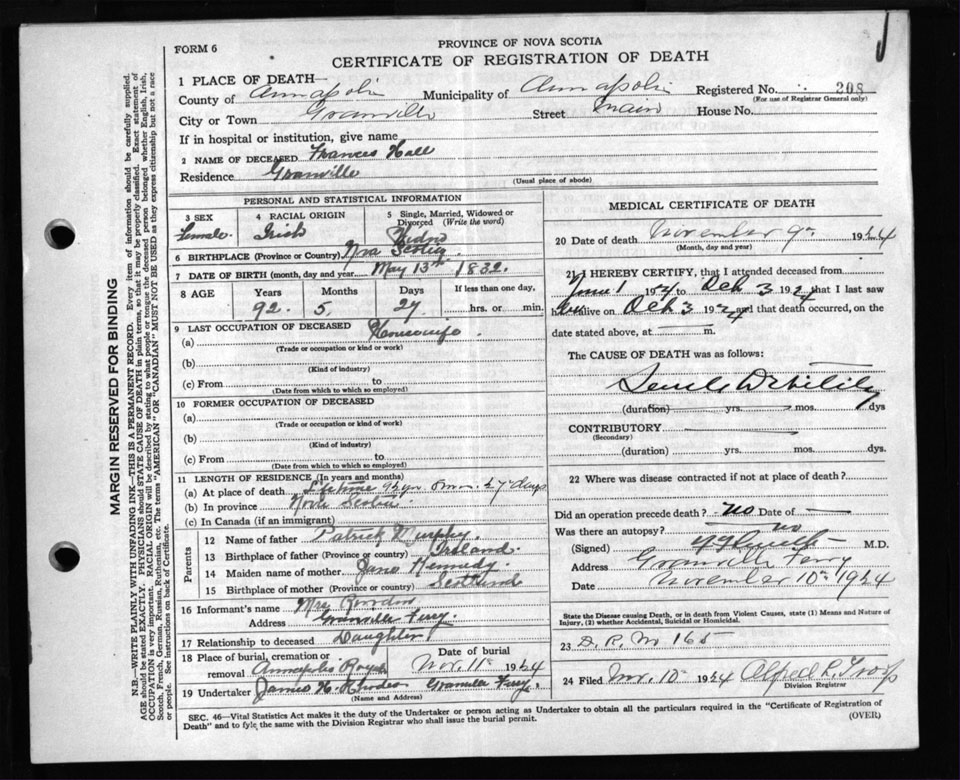 FORM 6
PROVINCE OF NOVA SCOTIA
CERTIFICATE OF REGISTRATION OF DEATH
1 PLACE OF DEATH—
County of Annapolis Municipality of Annapolis Registered No. 308
(For use of Registrar General only)
City or Town Granville Street Main House No.
If in hospital or institution, give name
2 NAME OF DECEASED Frances Hall
Residence Granville
(Usual place of abode)
PERSONAL AND STATISTICAL INFORMATION
3 SEX 4 RACIAL ORIGIN 5 Single, Married, Widowed or Divorced (Write the word)
Female Irish Widow
6 BIRTHPLACE (Province or Country) Nova Scotia
7 DATE OF BIRTH (month, day and year) May 13th 1832.
8 AGE Years Months Days If less than one day,
92. 5. 27 hrs. or min.
9 LAST OCCUPATION OF DECEASED
(a) Housewife
(Trade or occupation or kind or work)
(b)
(Kind of industry)
(c) From to
(Date from which to which so employed)
10 FORMER OCCUPATION OF DECEASED
(a)
(Trade or occupation or kind of work)
(b)
(Kind of industry)
(c) From to
(Date from which to which so employed)
11 LENGTH OF RESIDENCE (In years and months)
(a) At place of death Lifetime 92 yrs. 5 mos. 27 days
(b) In province Nova Scotia
(c) In Canada (if an immigrant)
Parents
12 Name of father Patrick Murphy
13 Birthplace of father (Province or country) Ireland.
14 Maiden name of mother Jane Kennedy
15 Birthplace of mother (Province or country) Scotland
16 Informant's name Mrs
Address Granville Ferry
17 Relationship to deceased Daughter
18 Place of burial, cremation or removal Annapolis Royal Date of burial Nov. 11th 1924
19 Undertaker James H. Rhodes Granville Ferry.
(Name and Address)
MEDICAL CERTIFICATE OF DEATH
20 Date of death November 9th 1924
(Month, day and year)
21 I HEREBY CERTIFY, that I attended deceased from
June 1 1924 to Oct 3 1924 that I last saw
h alive on Oct 3 1924 and that death occurred, on
the date stated above, at m.
The CAUSE OF DEATH was as follows:
Senile Debility
(duration) yrs. mos. dys
CONTRIBUTORY
(Secondary)
(duration) yrs. mos. dys.
22 Where was disease contracted if not at place of death?
Did an operation precede death? no Date of —
Was there an autopsy? no
(Signed) M.D.
Address Granville Ferry
Date November 10th 1924
State the Disease causing Death, or in death from Violent Causes, state (1) Means and Nature of Injury, (2) whether Accidental, Suicidal or Homicidal.
23 D. R. No 165
24 Filed Nov. 10 1924 Alfred P. Troop
Division Registrar
SEC. 46—Vital Statistics Act makes it the duty of the Undertaker or person acting as Undertaker to obtain all the particulars required in the "Certificate of Registration of
Death" and to file the same with the Division Registrar who shall issue the burial permit. (OVER)
MARGIN RESERVED FOR BINDING
N.B.—WRITE PLAINLY WITH UNFADING INK—THIS IS A PERMANENT RECORD. Every item of information should be carefully supplied.
AGE should be stated EXACTLY. PHYSICIANS should STATE CAUSE OF DEATH in plain terms, so that it may be properly classified. Exact statement of
OCCUPATION is very important. RACIAL ORIGIN will be described by stating to what people or tongue the deceased person belonged whether English, Irish,
Scotch, French, German, Russian, Ruthenian, etc. The terms "AMERICAN" OR "CANADIAN" MUST NOT BE USED as they express citizenship but not a race
or people. See instructions on back of Certificate.